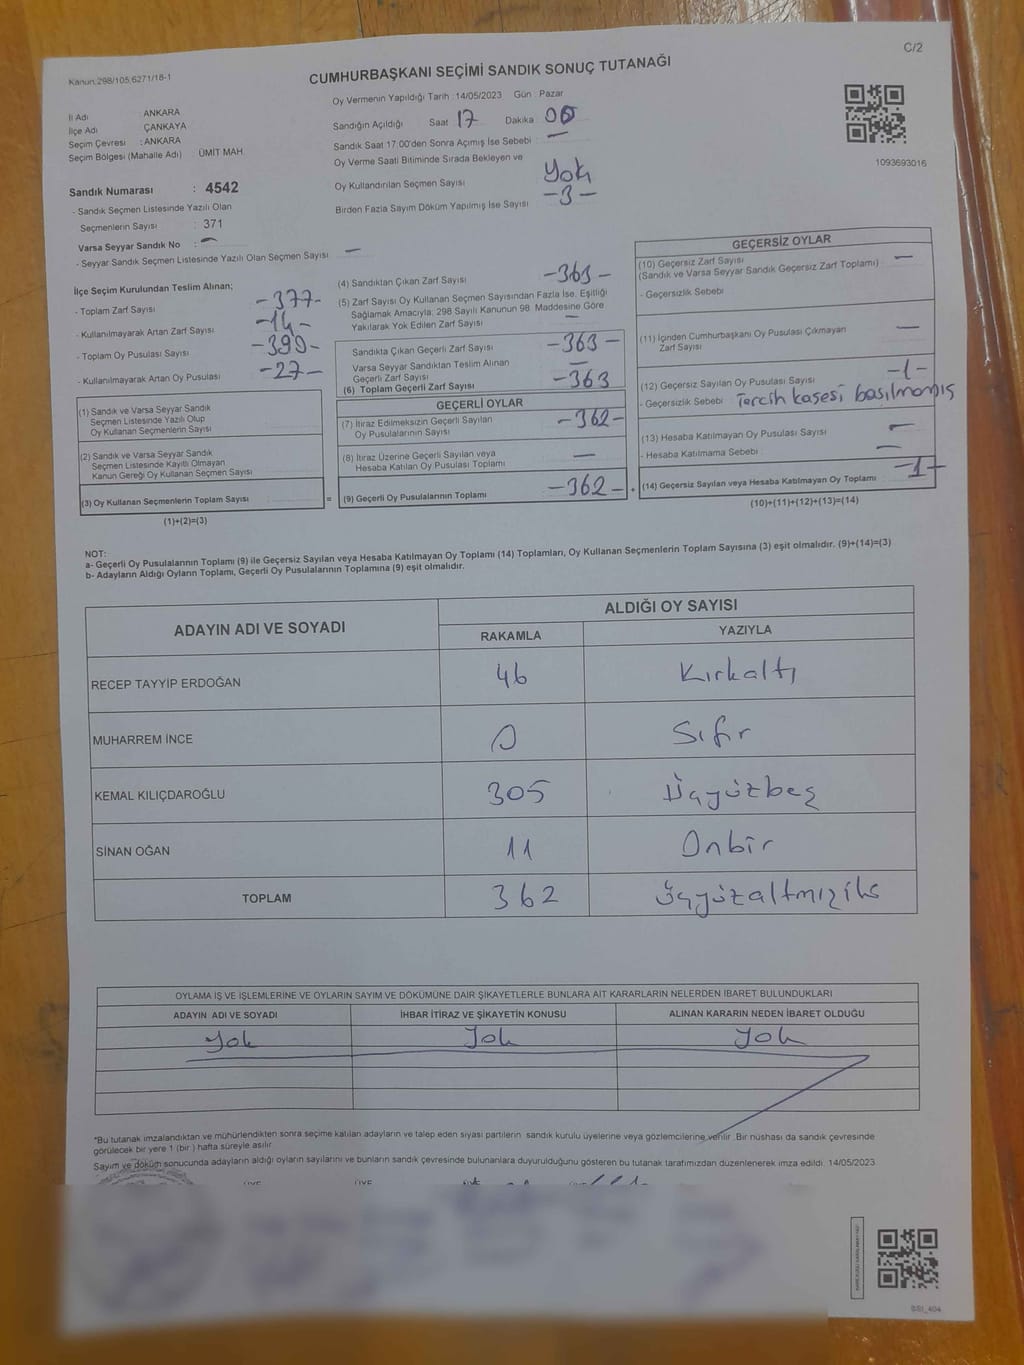 C/2
Kanun:298/105;6271/18-1
CUMHURBAŞKANI SEÇİMİ SANDIK SONUÇ TUTANAĞI
İl Adı : ANKARA
İlçe Adı ÇANKAYA
Seçim Çevresi : ANKARA
Seçim Bölgesi (Mahalle Adı) : ÜMİT MAH.
Sandık Numarası : 4542
- Sandık Seçmen Listesinde Yazılı Olan
Seçmenlerin Sayısı : 371
Varsa Seyyar Sandık No : —
- Seyyar Sandık Seçmen Listesinde Yazılı Olan Seçmen Sayısı —
Oy Vermenin Yapıldığı Tarih :14/05/2023 Gün : Pazar
Sandığın Açıldığı Saat 17 Dakika 00
Sandık Saat 17:00'den Sonra Açımış İse Sebebi : —
Oy Verme Saati Bitiminde Sırada Bekleyen ve
Oy Kullandırılan Seçmen Sayısı Yok
Birden Fazla Sayım Döküm Yapılmış İse Sayısı -3-
1093693016
İlçe Seçim Kurulundan Teslim Alınan;
- Toplam Zarf Sayısı -377-
- Kullanılmayarak Artan Zarf Sayısı -14-
- Toplam Oy Pusulası Sayısı -390-
- Kullanılmayarak Artan Oy Pusulası -27-
(1) Sandık ve Varsa Seyyar Sandık
Seçmen Listesinde Yazılı Olup
Oy Kullanan Seçmenlerin Sayısı
(2) Sandık ve Varsa Seyyar Sandık
Seçmen Listesinde Kayıtlı Olmayan
Kanun Gereği Oy Kullanan Seçmen Sayısı
(3) Oy Kullanan Seçmenlerin Toplam Sayısı =
(1)+(2)=(3)
(4) Sandıktan Çıkan Zarf Sayısı -363-
(5) Zarf Sayısı Oy Kullanan Seçmen Sayısından Fazla İse, Eşitliği
Sağlamak Amacıyla; 298 Sayılı Kanunun 98. Maddesine Göre
Yakılarak Yok Edilen Zarf Sayısı —
Sandıkta Çıkan Geçerli Zarf Sayısı -363-
Varsa Seyyar Sandıktan Teslim Alınan
Geçerli Zarf Sayısı —
(6) Toplam Geçerli Zarf Sayısı -363
GEÇERLİ OYLAR
(7) İtiraz Edilmeksizin Geçerli Sayılan
Oy Pusulalarının Sayısı -362-
(8) İtiraz Üzerine Geçerli Sayılan veya
Hesaba Katılan Oy Pusulası Toplamı —
(9) Geçerli Oy Pusulalarının Toplamı -362-
GEÇERSİZ OYLAR
(10) Geçersiz Zarf Sayısı —
(Sandık ve Varsa Seyyar Sandık Geçersiz Zarf Toplamı)
- Geçersizlik Sebebi
(11) İçinden Cumhurbaşkanı Oy Pusulası Çıkmayan
Zarf Sayısı —
(12) Geçersiz Sayılan Oy Pusulası Sayısı -1-
- Geçersizlik Sebebi Tercih kaşesi basılmamış
(13) Hesaba Katılmayan Oy Pusulası Sayısı —
- Hesaba Katılmama Sebebi —
(14) Geçersiz Sayılan veya Hesaba Katılmayan Oy Toplamı -1-
(10)+(11)+(12)+(13)=(14)
NOT:
a- Geçerli Oy Pusulalarının Toplamı (9) ile Geçersiz Sayılan veya Hesaba Katılmayan Oy Toplamı (14) Toplamları, Oy Kullanan Seçmenlerin Toplam Sayısına (3) eşit olmalıdır. (9)+(14)=(3)
b- Adayların Aldığı Oyların Toplamı, Geçerli Oy Pusulalarının Toplamına (9) eşit olmalıdır.
ADAYIN ADI VE SOYADI ALDIĞI OY SAYISI
RAKAMLA YAZIYLA
RECEP TAYYİP ERDOĞAN 46 Kırkaltı
MUHARREM İNCE 0 Sıfır
KEMAL KILIÇDAROĞLU 305 Üçyüzbeş
SİNAN OĞAN 11 Onbir
TOPLAM 362 üçyüzaltmışiki
OYLAMA İŞ VE İŞLEMLERİNE VE OYLARIN SAYIM VE DÖKÜMÜNE DAİR ŞİKAYETLERLE BUNLARA AİT KARARLARIN NELERDEN İBARET BULUNDUKLARI
ADAYIN ADI VE SOYADI İHBAR İTİRAZ VE ŞİKAYETİN KONUSU ALINAN KARARIN NEDEN İBARET OLDUĞU
Yok Yok Yok
*Bu tutanak imzalandıktan ve mühürlendikten sonra seçime katılan adayların ve talep eden siyasi partilerin sandık kurulu üyelerine veya gözlemcilerine verilir. Bir nüshası da sandık çevresinde
görülecek bir yere 1 (bir ) hafta süreyle asılır.
Sayım ve döküm sonucunda adayların aldığı oyların sayılarını ve bunların sandık çevresinde bulunanlara duyurulduğunu gösteren bu tutanak tarafımızdan düzenlenerek imza edildi. 14/05/2023
SSI_404